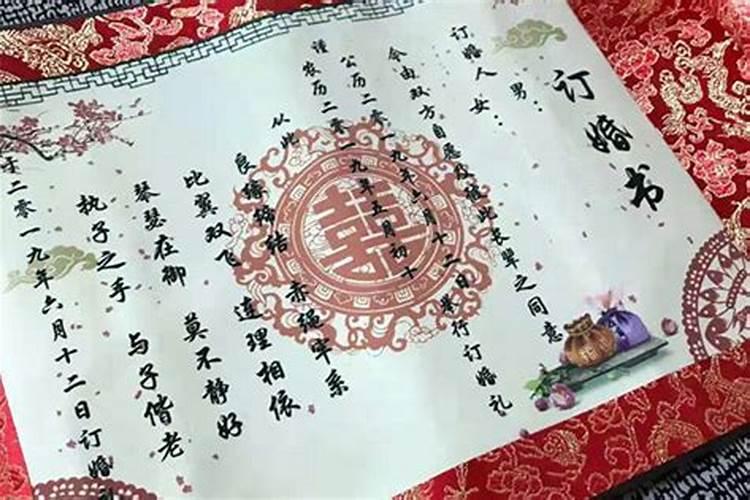 订婚书
男：
订婚人女：
今由双方自愿及此长辈之同意
公历二零一九年六月十二日举行订婚礼
谨农历二零一九年五月初十
从此
良缘缔结 赤绳牢系
比翼双飞 连理相依
琴瑟在御 莫不静好
执子之手 与子偕老
于二零一九年六月十二日订婚
囍